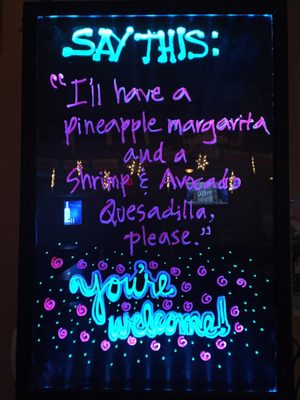 SAY THIS:
"I'll have a
pineapple margarita
and a
Shrimp & Avocado
Quesadilla,
please."
you're
welcome!